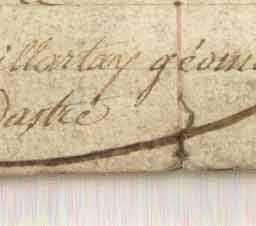 illartay géom
dastre